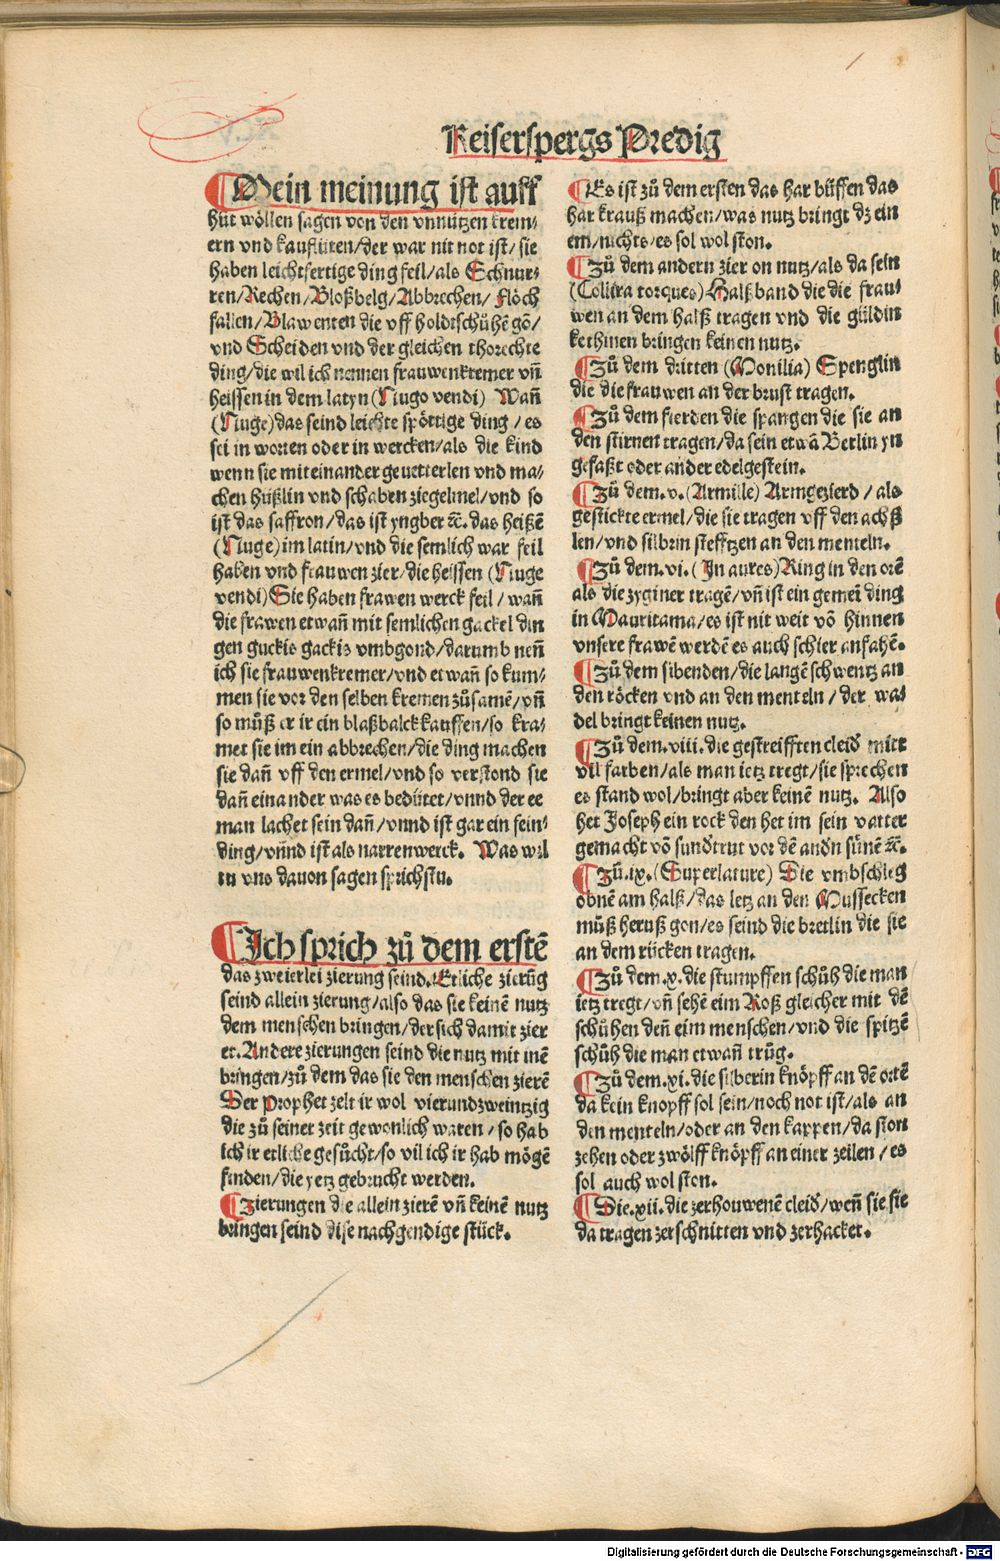 Keiserspergs Predig
¶Mein meinung ist auff
hüt wöllen sagen von den vnnützen krem⸗
ern vnd kauflüten/der war nit not ist/ sie
haben leichtfertige ding feil/als Schnur⸗
ren/Rechen/Bloßbelg/Abbrechen/ Flöch
fallen/Blawenten die vff holdtschühē gō/
vnd Scheiden vnd der gleichen thorechte
ding/die wil ich nennen frauwenkremer vn̄
heissen in dem latyn (Nugo vendi) Wañ
(Nuge)das seind leichte spöttige ding / es
sei in worten oder in wercken/als die kind
wenn sie miteinander geuetterlen vnd ma⸗
chen hüßlin vnd schaben ziegelmel/vnd so
ist das saffron/das ist yngber ꝛc̄. das heißē
(Nuge)im latin/vnd die semlich war feil
haben vnd frauwen zier/die heissen (Nuge
vendi)Sie haben frawen werck feil / wañ
die frawen etwañ mit semlichen gackel din
gen guckis gackis vmbgond/darumb neñ
ich sie frauwenkremer/vnd etwañ so kum⸗
men sie vor den selben kremen zůsamē/vn̄
so můß er ir ein blaßbalck kauffen/so kra⸗
met sie im ein abbrechen/die ding machen
sie dañ vff den ermel/vnd so verstond sie
dañ einander was es bedütet/vnnd der ee
man lachet sein dañ/vnnd ist gar ein fein⸗
ding/vñnd ist als narrenwerck. Was wil
tu vns dauon sagen sprichstu.
¶Ich sprich zů dem erstē
das zweierlei zierung seind. Etliche zierūg
seind allein zierung/also das sie keinē nutz
dem menschen bringen/der sich damit zier
et. Andere zierungen seind die nutz mit inē
bringen/zů dem das sie den menschen zierē
Der Prophet zelt ir wol vierundzweintzig
die zů seiner zeit gewonlich waren / so hab
ich ir etliche gesůcht/so vil ich ir hab mögē
finden/die yetz gebrucht werden.
¶Zierungen die allein zierē vn̄ keinē nutz
bringen seind dise nachgendige stück.
¶Es ist zů dem ersten das har büffen das
har krauß machen/was nutz bringt dz ein
em/nichts/es sol wol ston.
¶Zů dem andern zier on nutz/als da sein
(Collira torques)Halßband die die frau⸗
wen an dem halß tragen vnd die güldin
kethinen bringen keinen nutz.
¶Zů dem dritten (Monilia) Spenglin
die die frauwen an der brust tragen.
¶Zů dem fierden die spangen die sie an
den stirnen tragen/da sein etwā Berlin yn
gefaßt oder ander edelgestein.
¶Zů dem.v.(Armille) Armgezierd / als
gestickte ermel/die sie tragen vff den achß
len/vnd silbrin stefftzen an den menteln.
¶Zů dem.vi.( In aures)Ring in den orē
als die zyginer tragē/vn̄ ist ein gemei ding
in Mauritama/es ist nit weit vō hinnen
vnsere frawē werdē es auch schier anfahē.
¶Zů dem sibenden/die langē schwentz an
den röcken vnd an den menteln / der wa⸗
del bringt keinen nutz.
¶Zů dem.viii. die gestreifften cleid mitt
vil farben/als man ietz tregt/sie sprechen
es stand wol/bringt aber keinē nutz. Also
het Joseph ein rock den het im sein vatter
gemacht vō sundtrut vor dē andn sünē ꝛc̄.
¶Zů.ix.(Superlature) Die vmbschleg
obnē am halß/das letz an den Mussecken
můß heruß gon/es seind die bretlin die sie
an dem rücken tragen.
¶Zů dem.x. die stumpffen schůh die man
ietz tregt/vn̄ sehē eim Roß gleicher mit dē
schůhen deñ eim menschen/vnd die spitzē
schůh die man etwañ trůg.
¶Zů dem.xi. die silberin knöpff an dē ortē
da kein knopff sol sein/noch not ist/als an
den menteln/oder an den kappen/da ston
zehen oder zwölff knöpff an einer zeilen / es
sol auch wol ston.
¶Die.xii. die zerhouwenē cleid/weñ sie sie
da tragen zerschnitten vnd zerhacket.
Digitalisierung gefördert durch die Deutsche Forschungsgemeinschaft - DFG